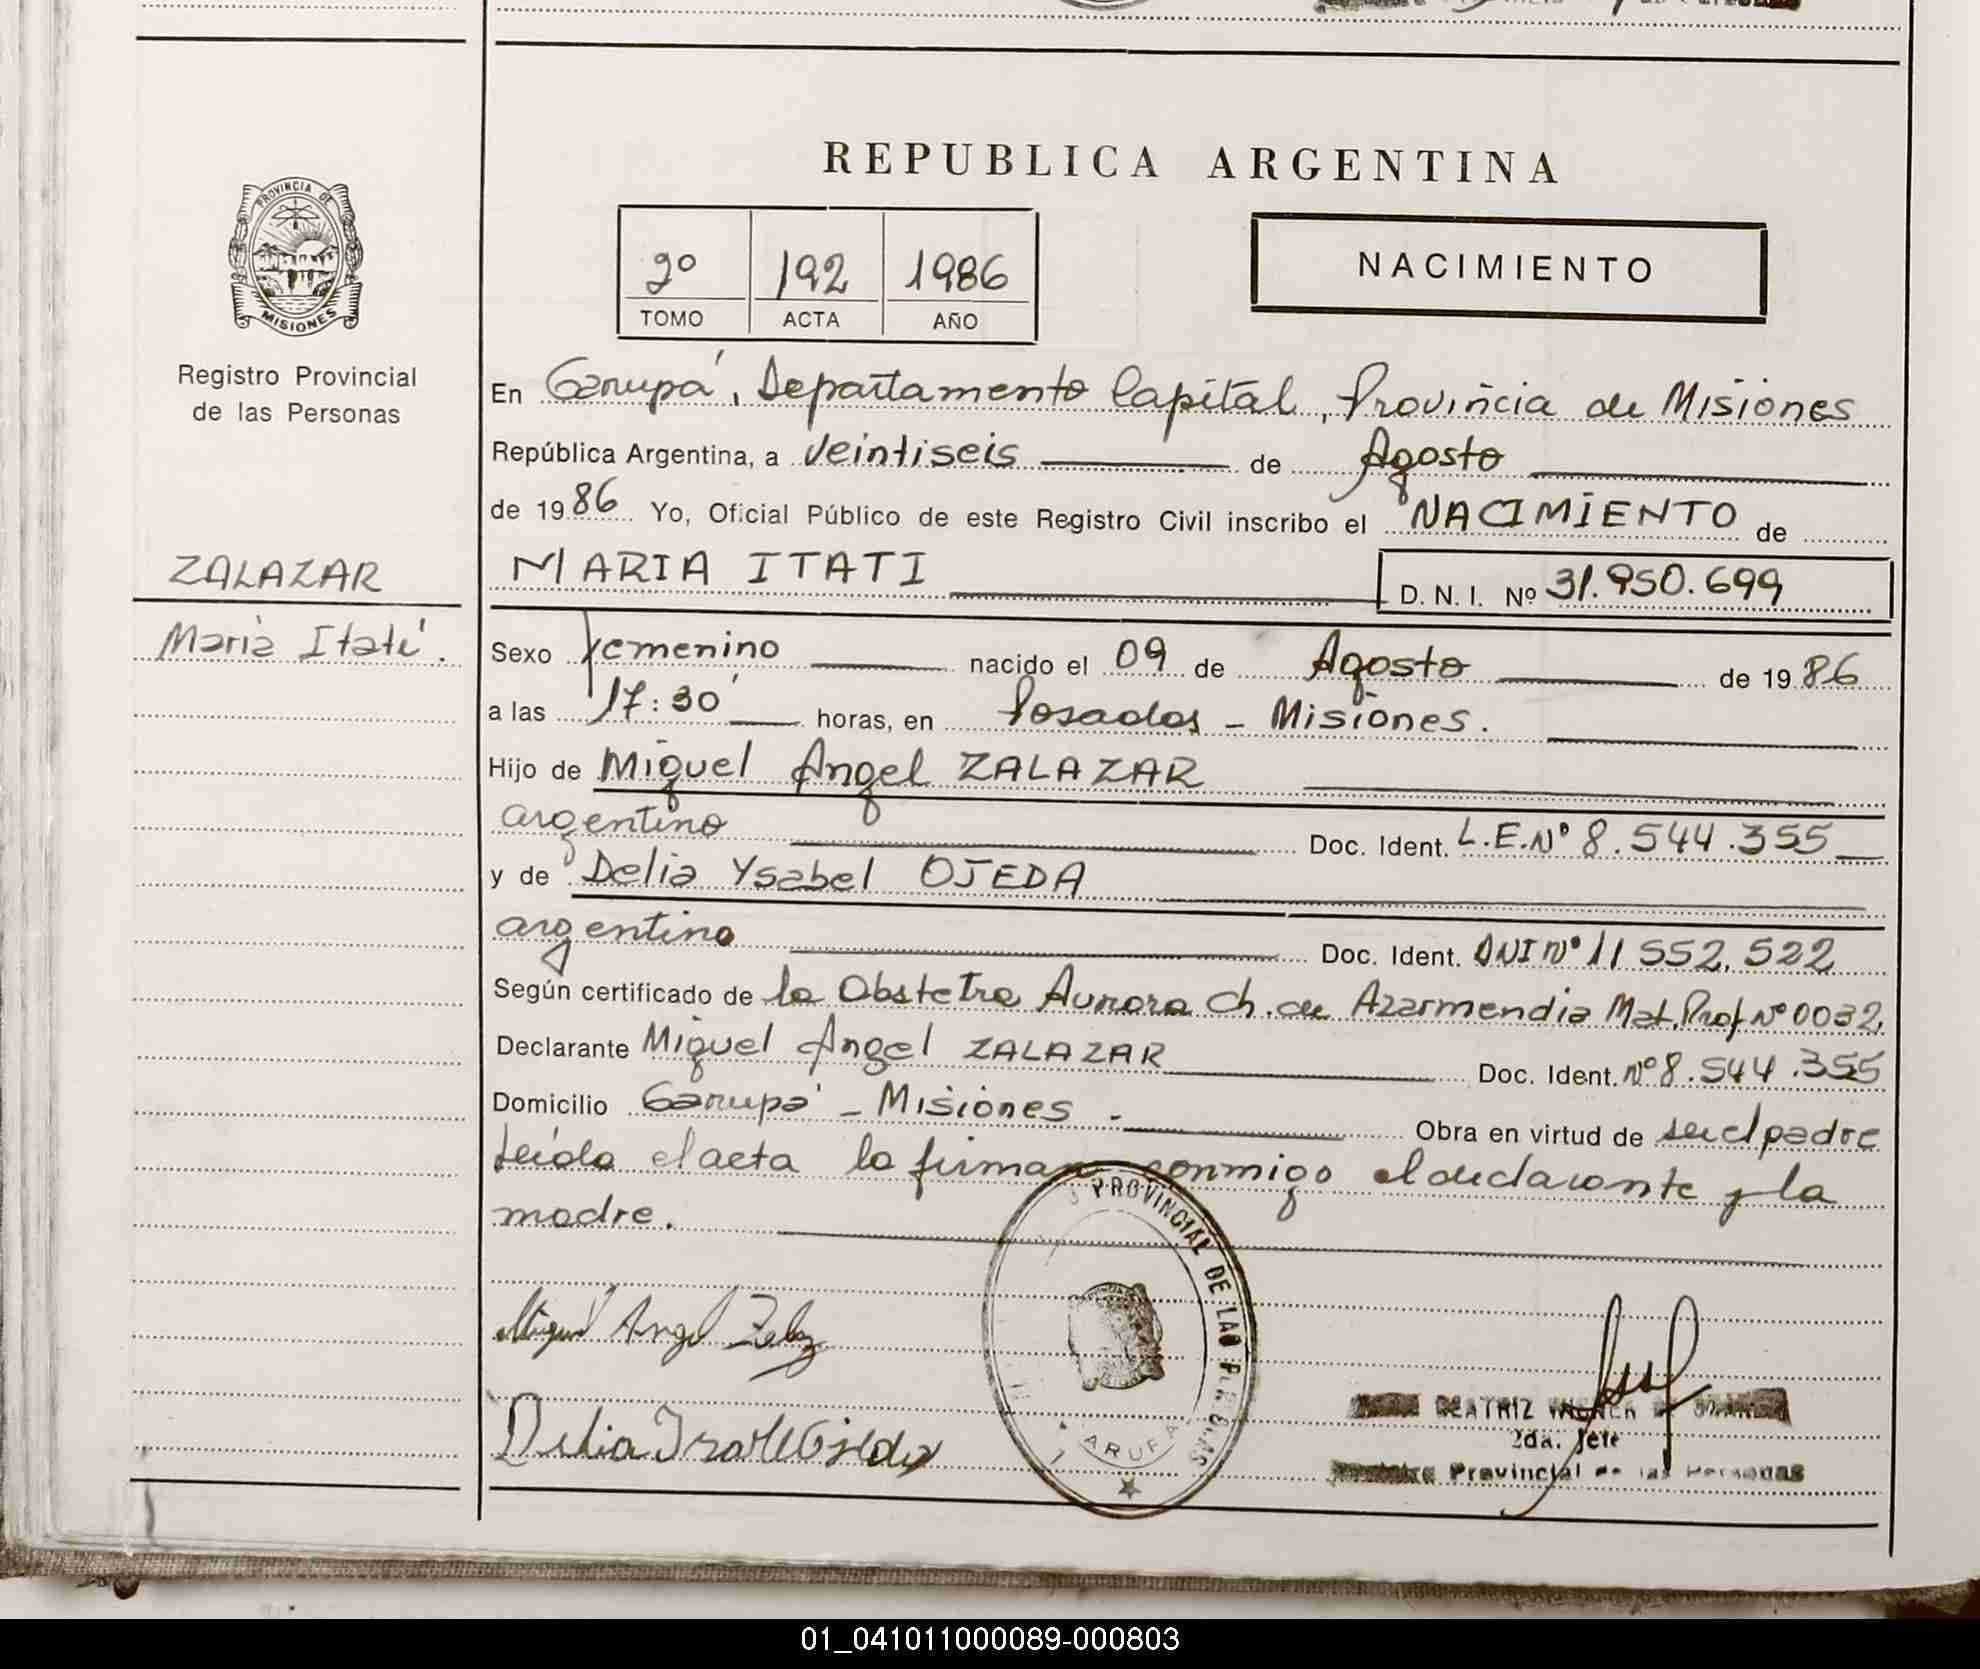 REPUBLICA ARGENTINA
2º 192 1986
TOMO ACTA AÑO
NACIMIENTO
PROVINCIA DE
MISIONES
Registro Provincial
de las Personas
ZALAZAR
Maria Itatí.
En Garupá, Departamento Capital, Provincia de Misiones
República Argentina, a veintiseis de Agosto
de 1986 Yo, Oficial Público de este Registro Civil inscribo el NACIMIENTO de
MARIA ITATI D. N. I. Nº 31.950.699
Sexo femenino nacido el 09 de Agosto de 1986
a las 17:30 horas, en Posadas - Misiones.
Hijo de Miguel Angel ZALAZAR
argentino Doc. Ident. L.E.Nº 8.544.355
y de Delia Ysabel OJEDA
argentino Doc. Ident. DNI Nº 11.552.522
Según certificado de la Obstetra Aurora Ch. de Azarmendia Mat. Prof Nº 0032.
Declarante Miguel Angel ZALAZAR Doc. Ident. Nº 8.544.355
Domicilio Garupá - Misiones - Obra en virtud de ser el padre
Leída el acta la firman conmigo el declarante y la
madre.
PROVINCIAL DE LAS PERSONAS
Miguel Angel
Delia Ojeda
BEATRIZ
2da. Jefe
Provincial de las Personas
01_041011000089-000803